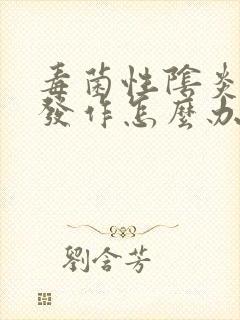 毒菌性陰炎
發作怎麼办
劉含芳